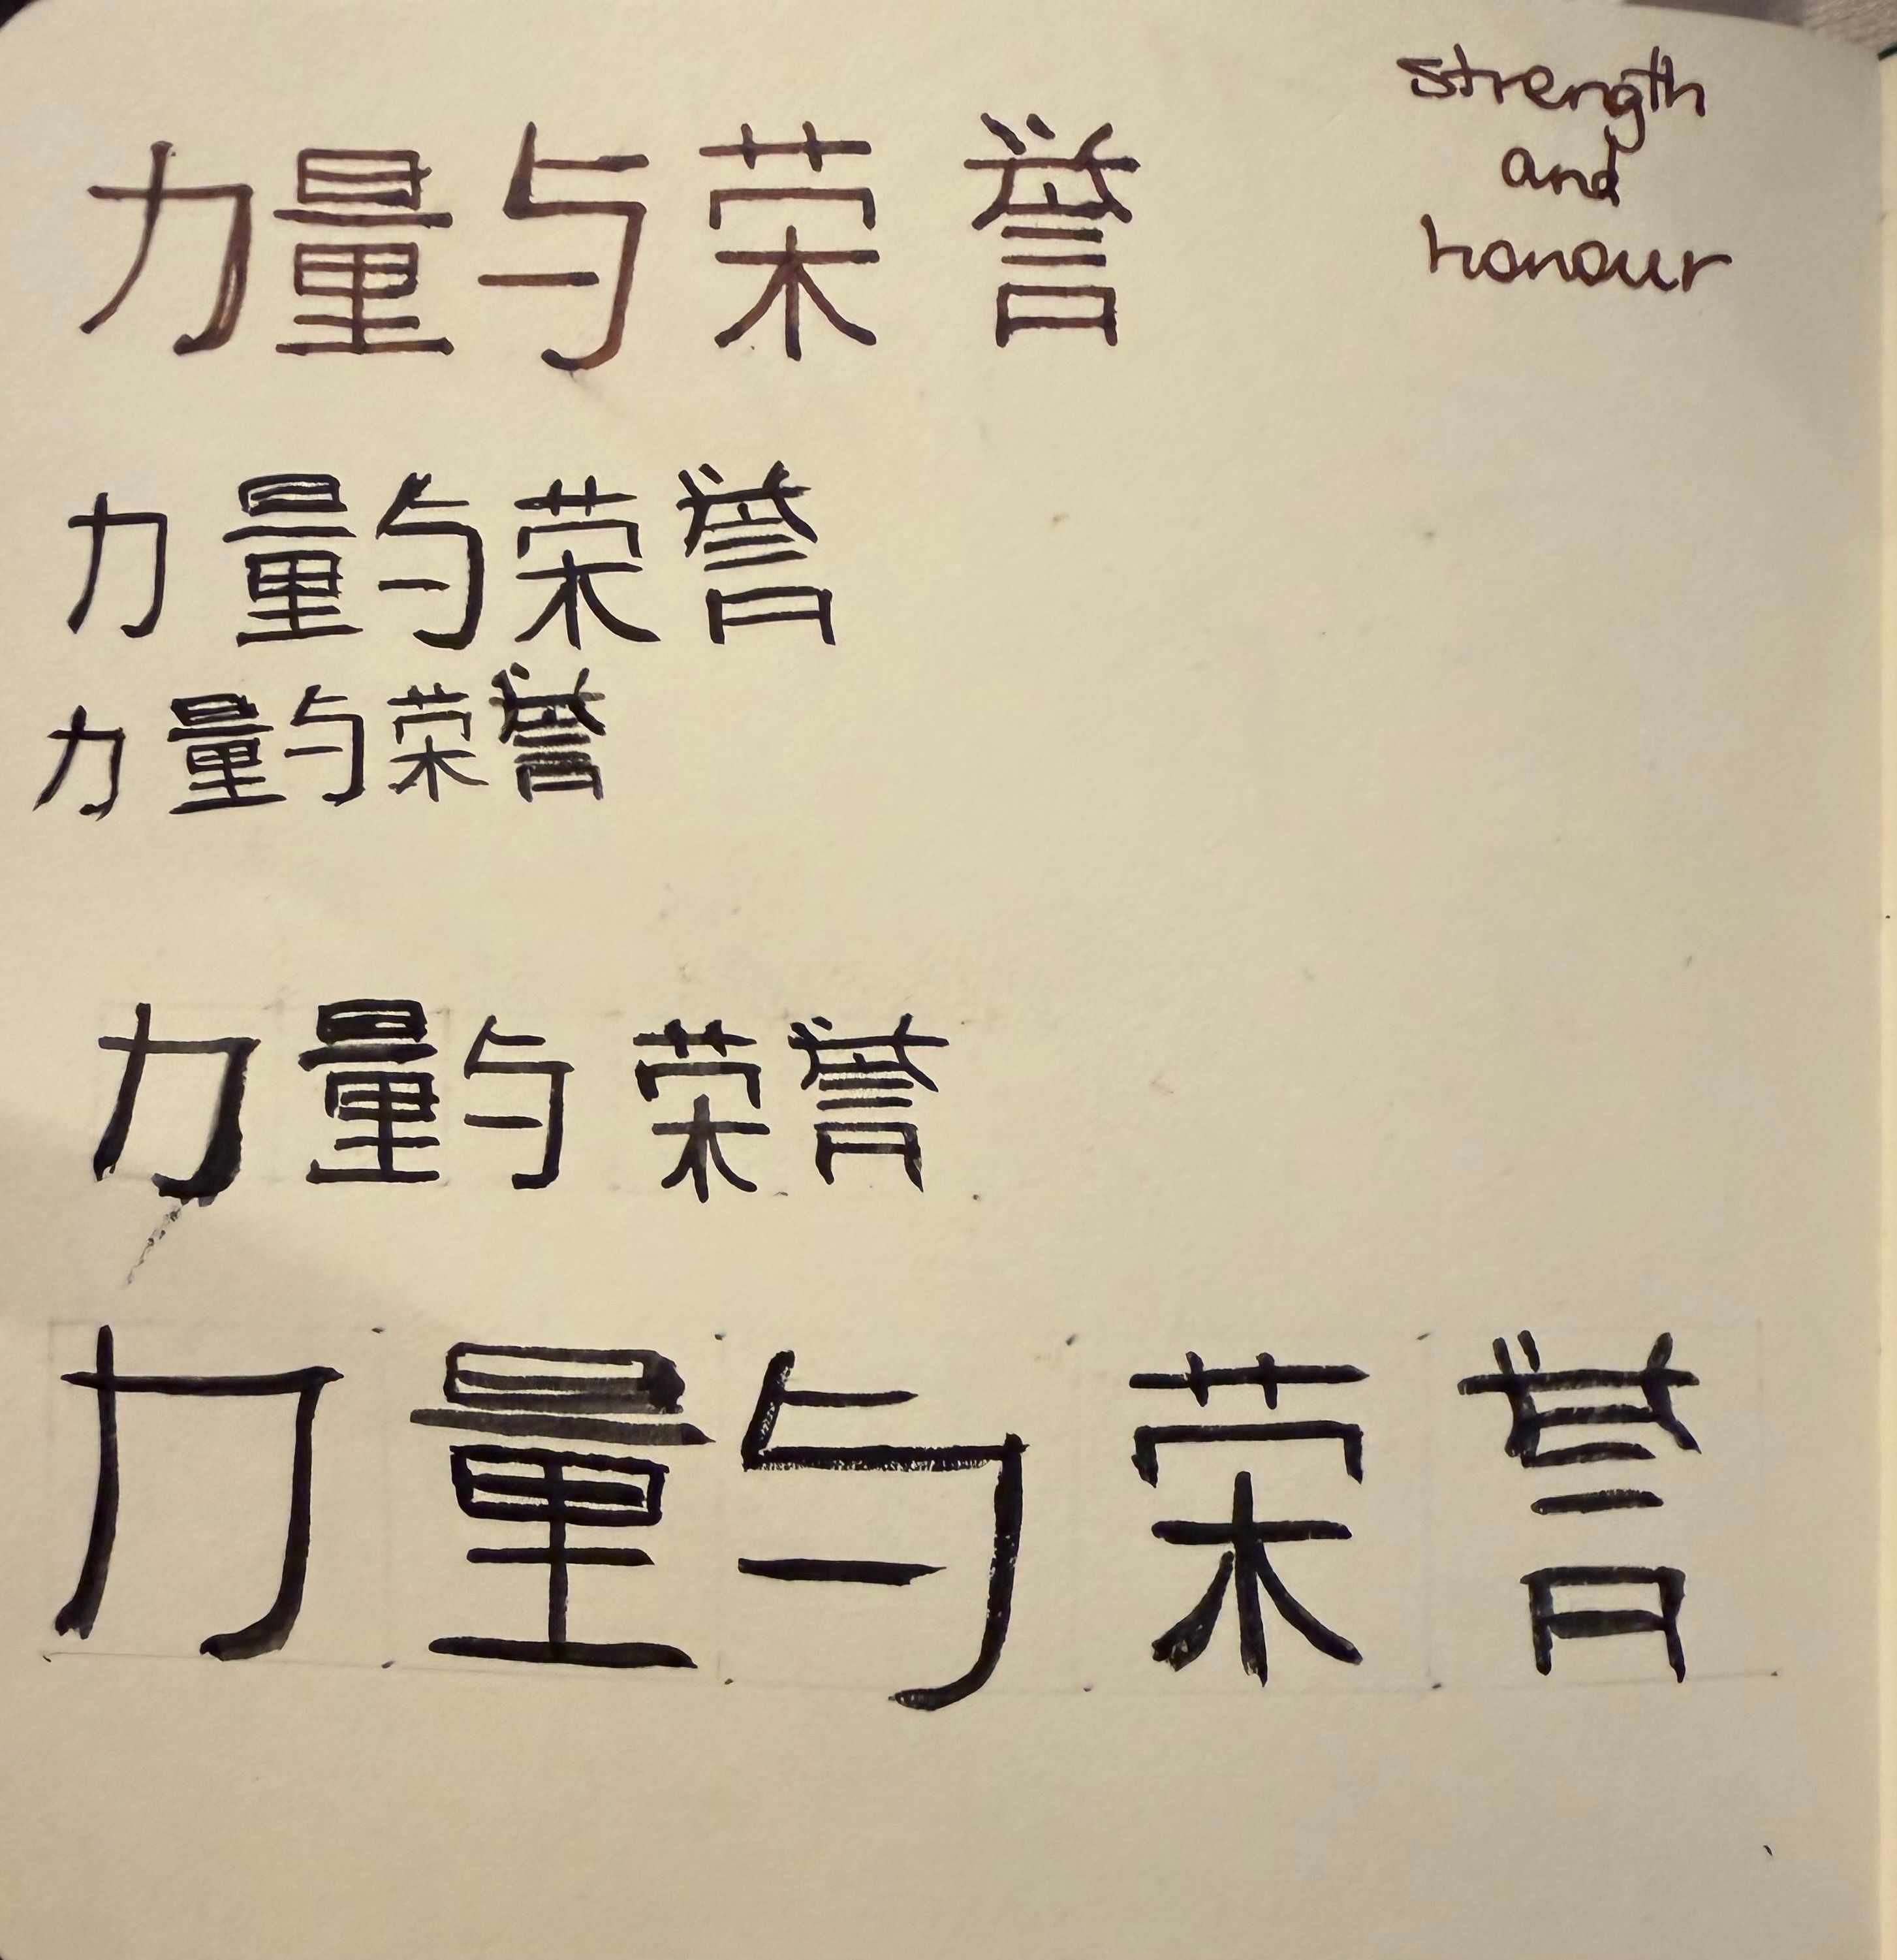 力量与荣誉
strength
and
honour
力量与荣誉
力量与荣誉
力量与荣誉
力量与荣誉